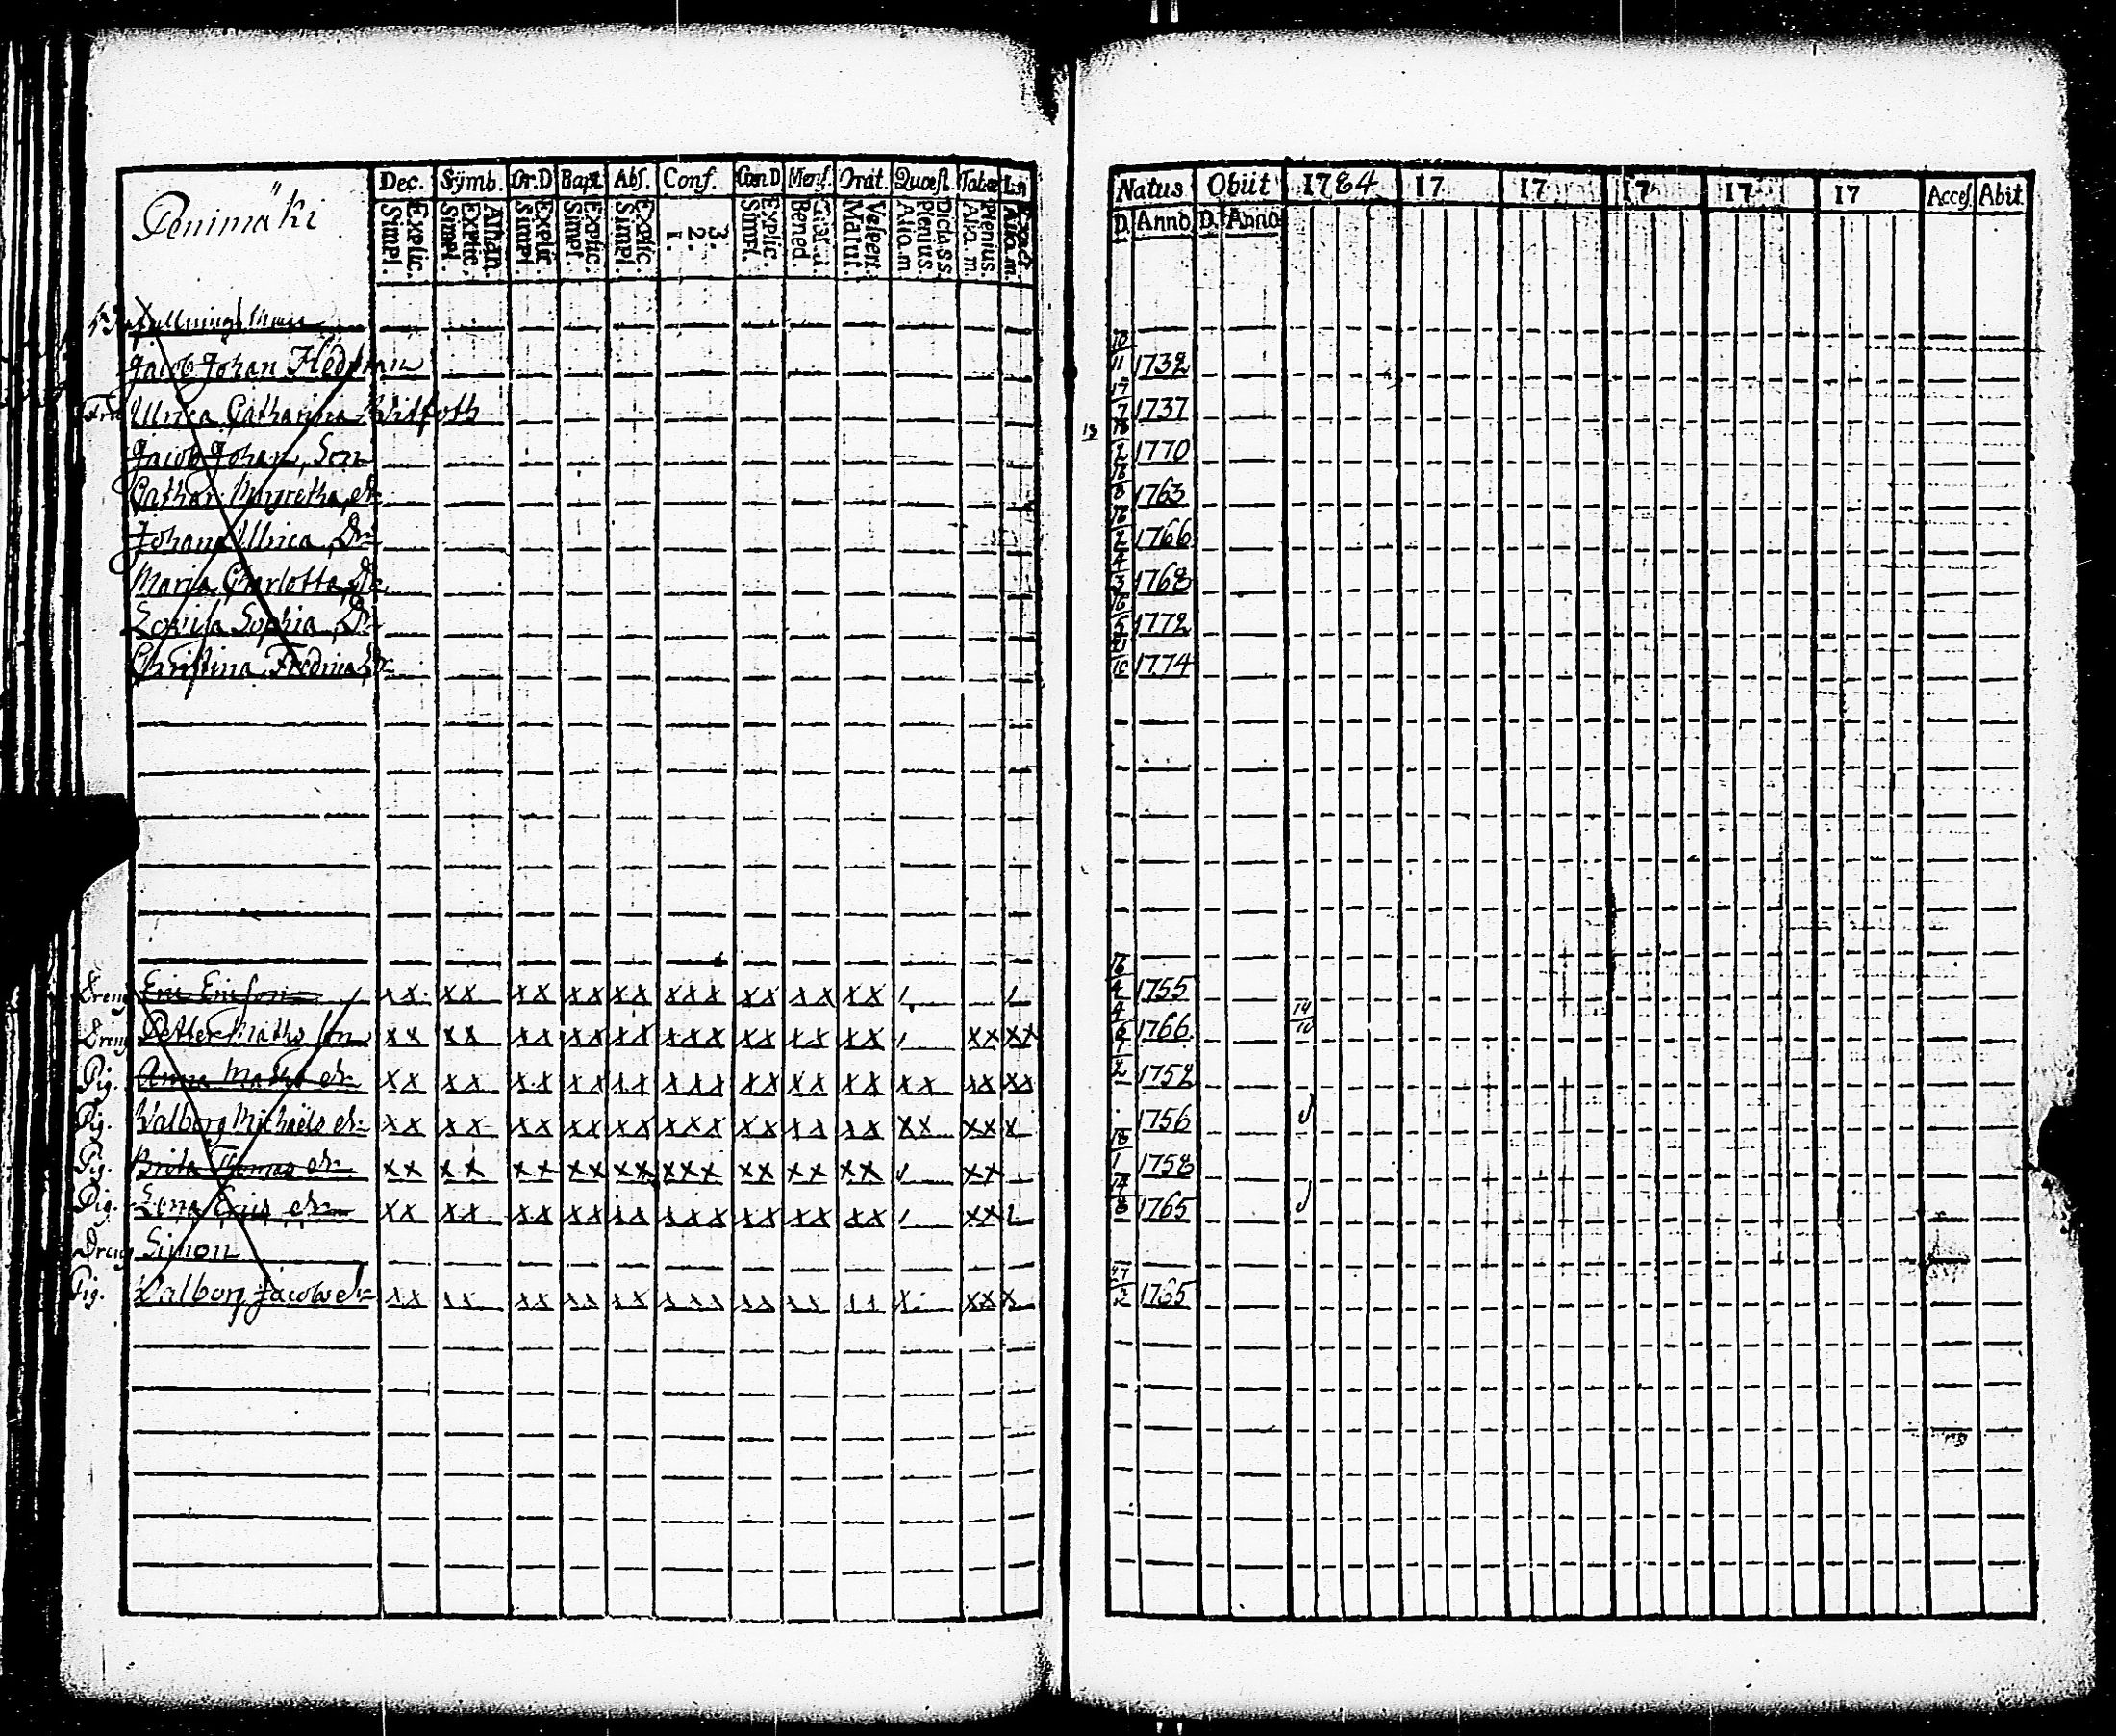 Penimäki
Dec. Symb. Or.D Bapt. Abs. Conf. Cœn.D Mens. Orat. Quæst. Tabæ
Explic. Simpl. Athan. Explic. Simpl. Explic. Simpl. Explic. Simpl. Explic. Simpl. 3. 2. 1. Explic. Simpl. Grat.a. Bened. Vesper. Matut. Dicta.S.S. Plenius. Alio.m. Plenius. Alia.m. Exact.
Natus Obiit 1784 17 17 17 17 17 Acces. Abit
D. Anno D. Anno
Jacob Johan Hedman 10/11 1732
Ulrica Catharina 17/7 1737
Jacob Johan, Son 1770
Cathar. Margretha, dr 1763
Johana Ulrica, Dr 1766
Maria Charlotta, Dr 1768
Lovisa Sophia, Dr 1772
Christina Fredrica, Dr 1774
Dreng Eric Ericson xx xx xx xx xx xxx xx xx xx 1755
Dreng Petter Maths son xx xx xx xx xx xxx xx xx xx xx xx 1766 14/10
Pig. Anna Maths dr xx xx xx xx xx xxx xx xx xx xx xx xx 1752
Pig. Valborg Michaëls dr xx xx xx xx xx xxx xx xx xx xx xx x 1756
Pig. Brita Thomas dr xx xx xx xx xx xxx xx xx xx xx 18/1 1758
Pig. Lena Erics dr xx xx xx xx xx xxx xx xx xx xx 14/8 1765
Dreng Simon
Pig. Valborg Jacobs dr xx xx xx xx xx xxx xx xx xx x xx x 1765